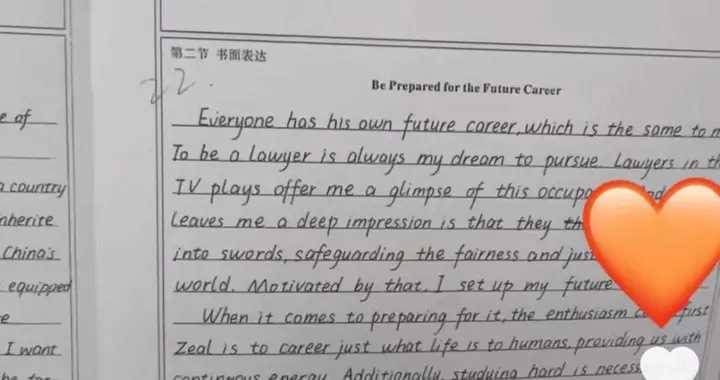 第二节 书面表达
22.
Be Prepared for the Future Career
Everyone has his own future career, which is the same to
To be a lawyer is always my dream to pursue. Lawyers in
TV plays offer me a glimpse of this
leaves me a deep impression is that they
into swords, safeguarding the fairness and
world. Motivated by that, I set up my future
When it comes to preparing for it, the enthusiasm first
Zeal is to career just what life is to humans, providing us with
continuous energy. Additionally, studying hard is
e of
a country
nherite
China's
equipped
e
I want